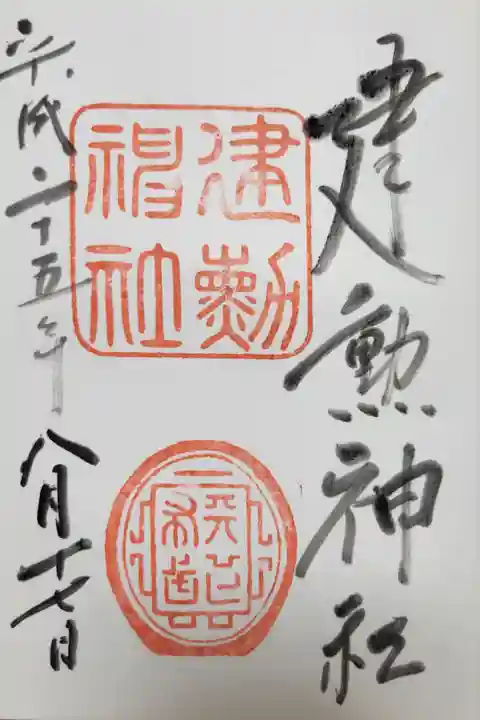 建勲神社
建勲
神社
平成二十五年八月十七日